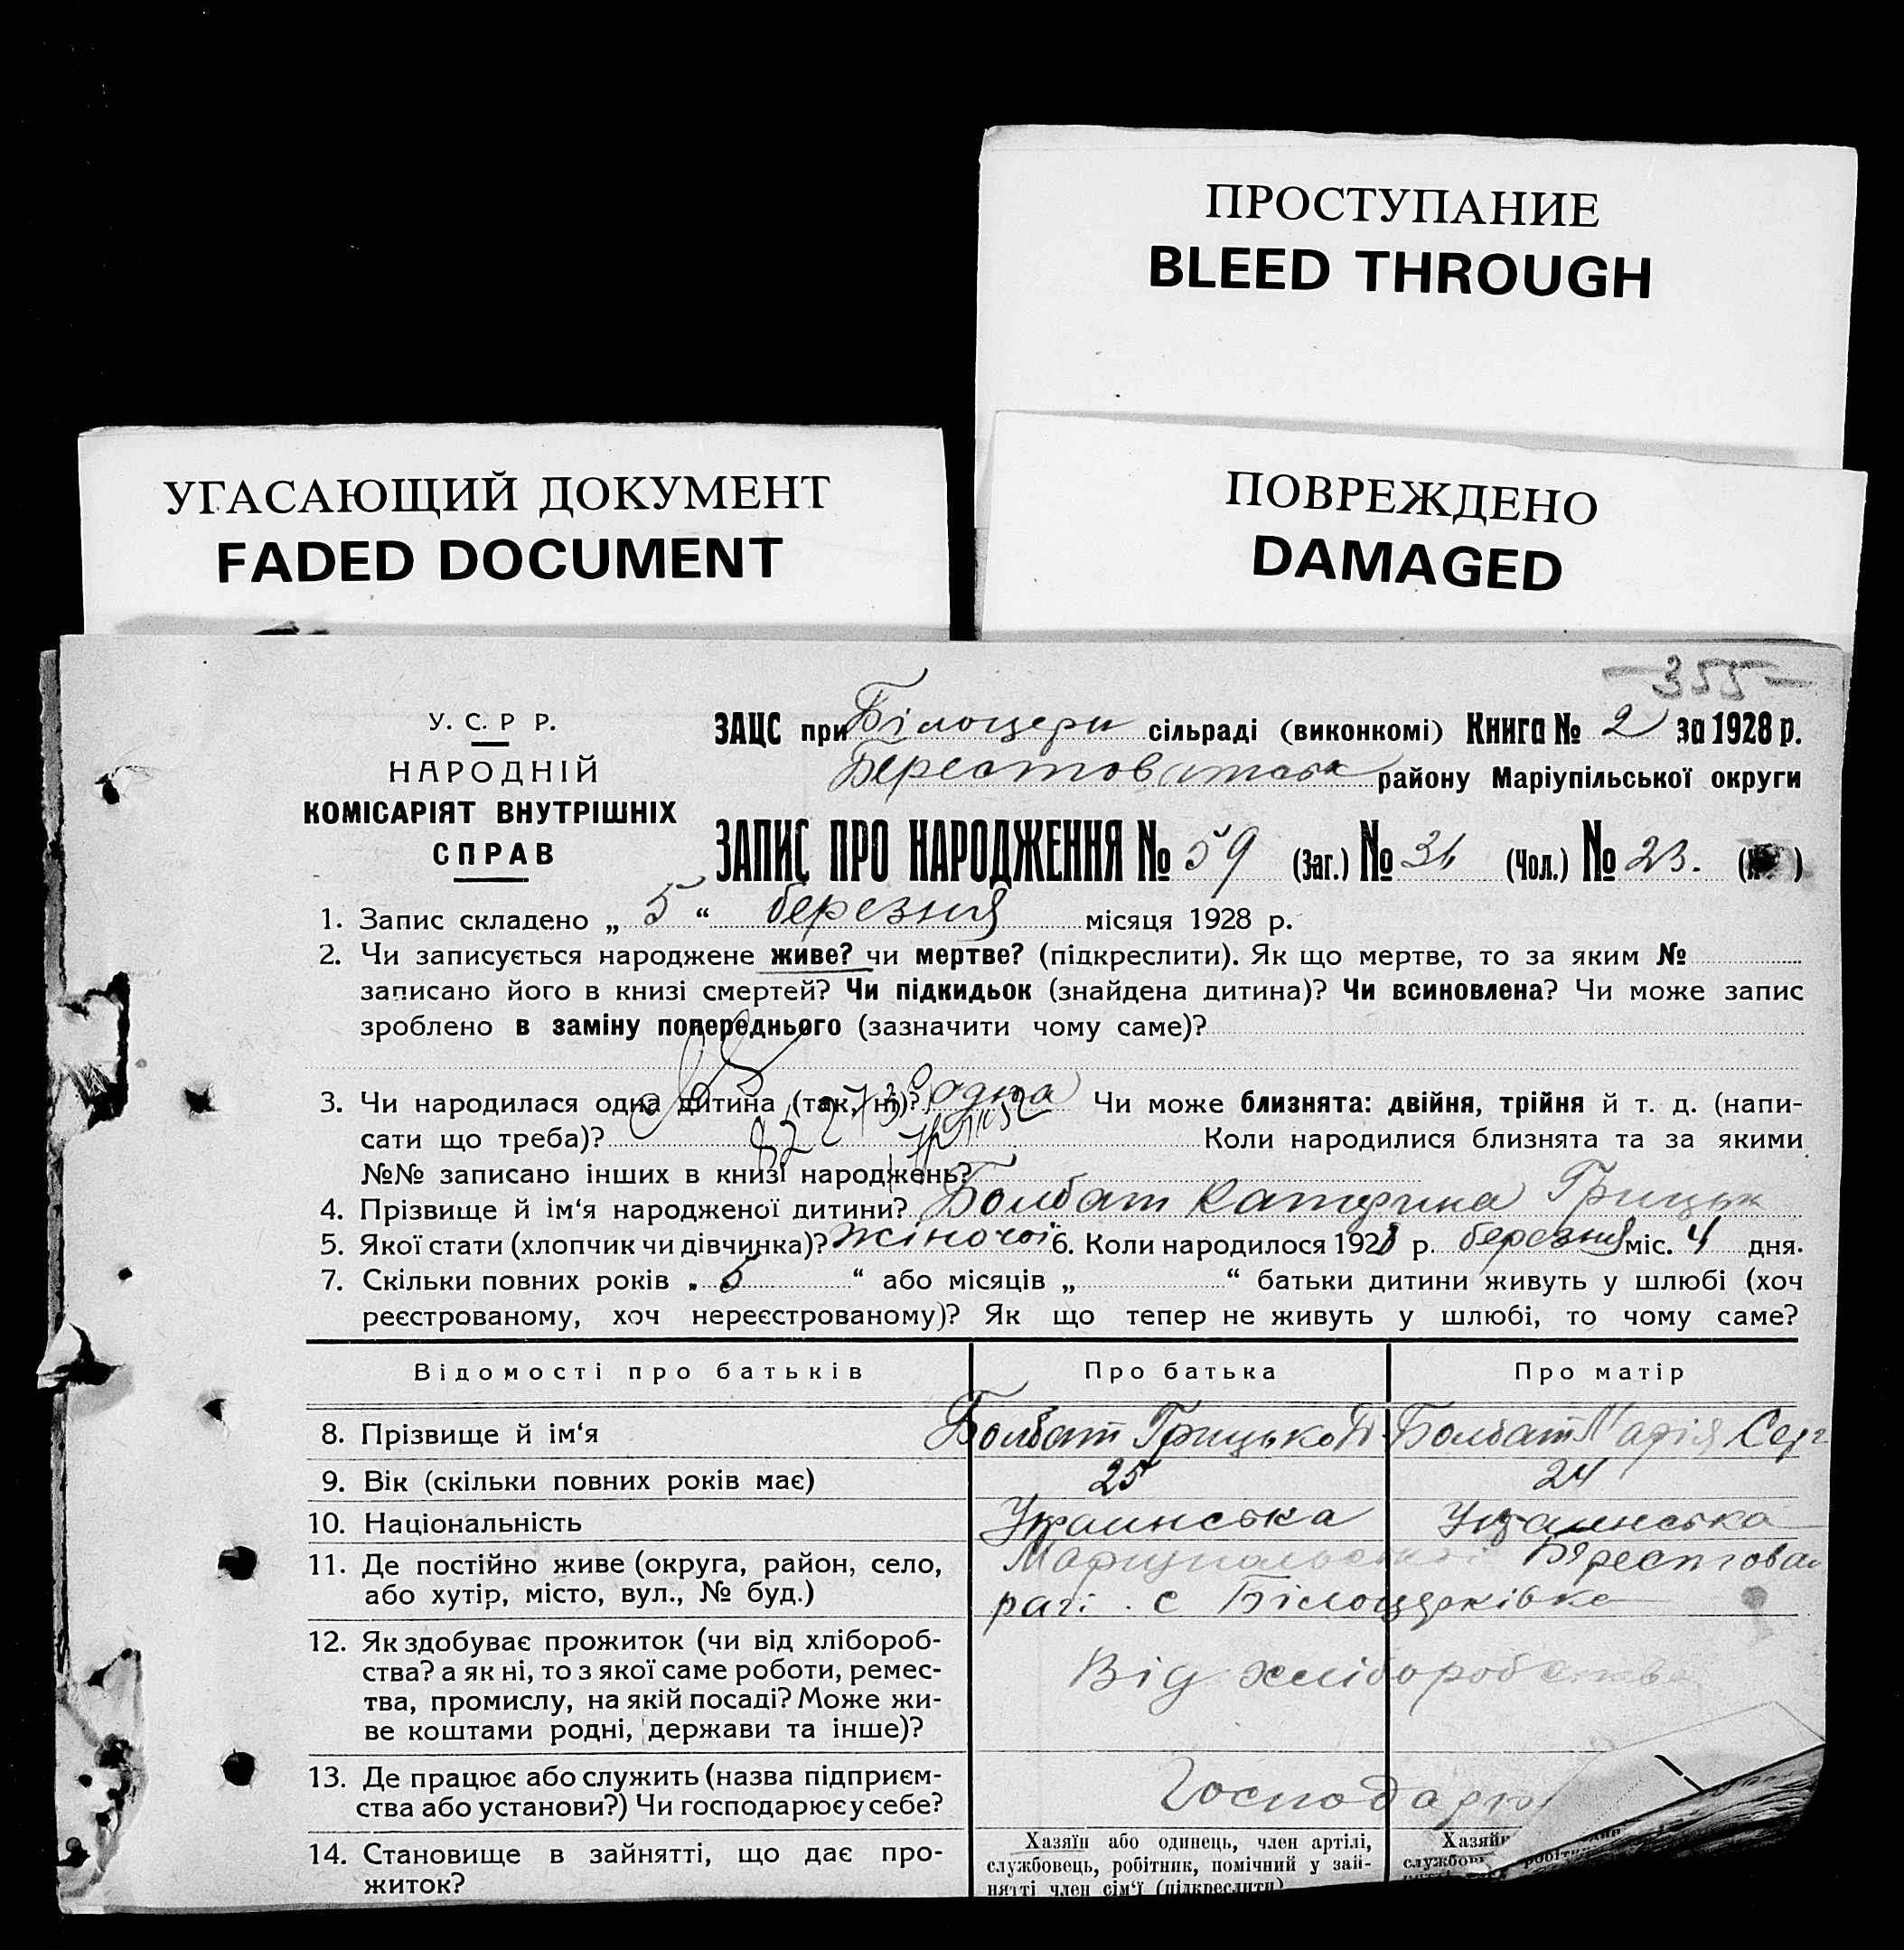 ПРОСТУПАНИЕ
BLEED THROUGH
УГАСАЮЩИЙ ДОКУМЕНТ
FADED DOCUMENT
ПОВРЕЖДЕНО
DAMAGED
355
У. С. Р Р.
НАРОДНІЙ
КОМІСАРІЯТ ВНУТРІШНІХ
СПРАВ
ЗАЦС при Білоцерк сільраді (виконкомі) Книга № 2 за 1928 р.
району Маріупільської округи
ЗАПИС ПРО НАРОДЖЕННЯ № 59 (Заг.) № (Чол.) № 23.
1. Запис складено „ 5 “ березня місяця 1928 р.
2. Чи записується народжене живе? чи мертве? (підкреслити). Як що мертве, то за яким №
записано його в книзі смертей? Чи підкидьок (знайдена дитина)? Чи всиновлена? Чи може запис
зроблено в заміну попереднього (зазначити чому саме)?
3. Чи народилася одна дитина (так, ні)? одна Чи може близнята: двійня, трійня й т. д. (напи-
сати що треба)? Коли народилися близнята та за якими
№№ записано інших в книзі народжень?
4. Прізвище й ім‘я народженої дитини? Болбат Катерина Грицьк
5. Якої стати (хлопчик чи дівчинка)? жіночої 6. Коли народилося 1928 р. березня міс. 4 дня.
7. Скільки повних років „ 5 “ або місяців „ “ батьки дитини живуть у шлюбі (хоч
реєстрованому, хоч нереєстрованому)? Як що тепер не живуть у шлюбі, то чому саме?
Відомості про батьків Про батька Про матір
8. Прізвище й ім‘я Болбат Грицько Болбат Марія Сер
9. Вік (скільки повних років має) 25 24
10. Національність Украинська Украинська
11. Де постійно живе (округа, район, село,
або хутір, місто, вул., № буд.) с Білоцерківка
12. Як здобуває прожиток (чи від хлібороб-
ства? а як ні, то з якої саме роботи, ремес-
тва, промислу, на якій посаді? Може жи-
ве коштами родні, держави та інше)?
Від хліборобства
13. Де працює або служить (назва підприєм-
ства або установи?) Чи господарює у себе?
Господарю
14. Становище в зайнятті, що дає про-
житок?
Хазяїн або одинець, член артілі,
службовець, робітник, помічний у зай-
нятті член сім‘ї (підкреслити)